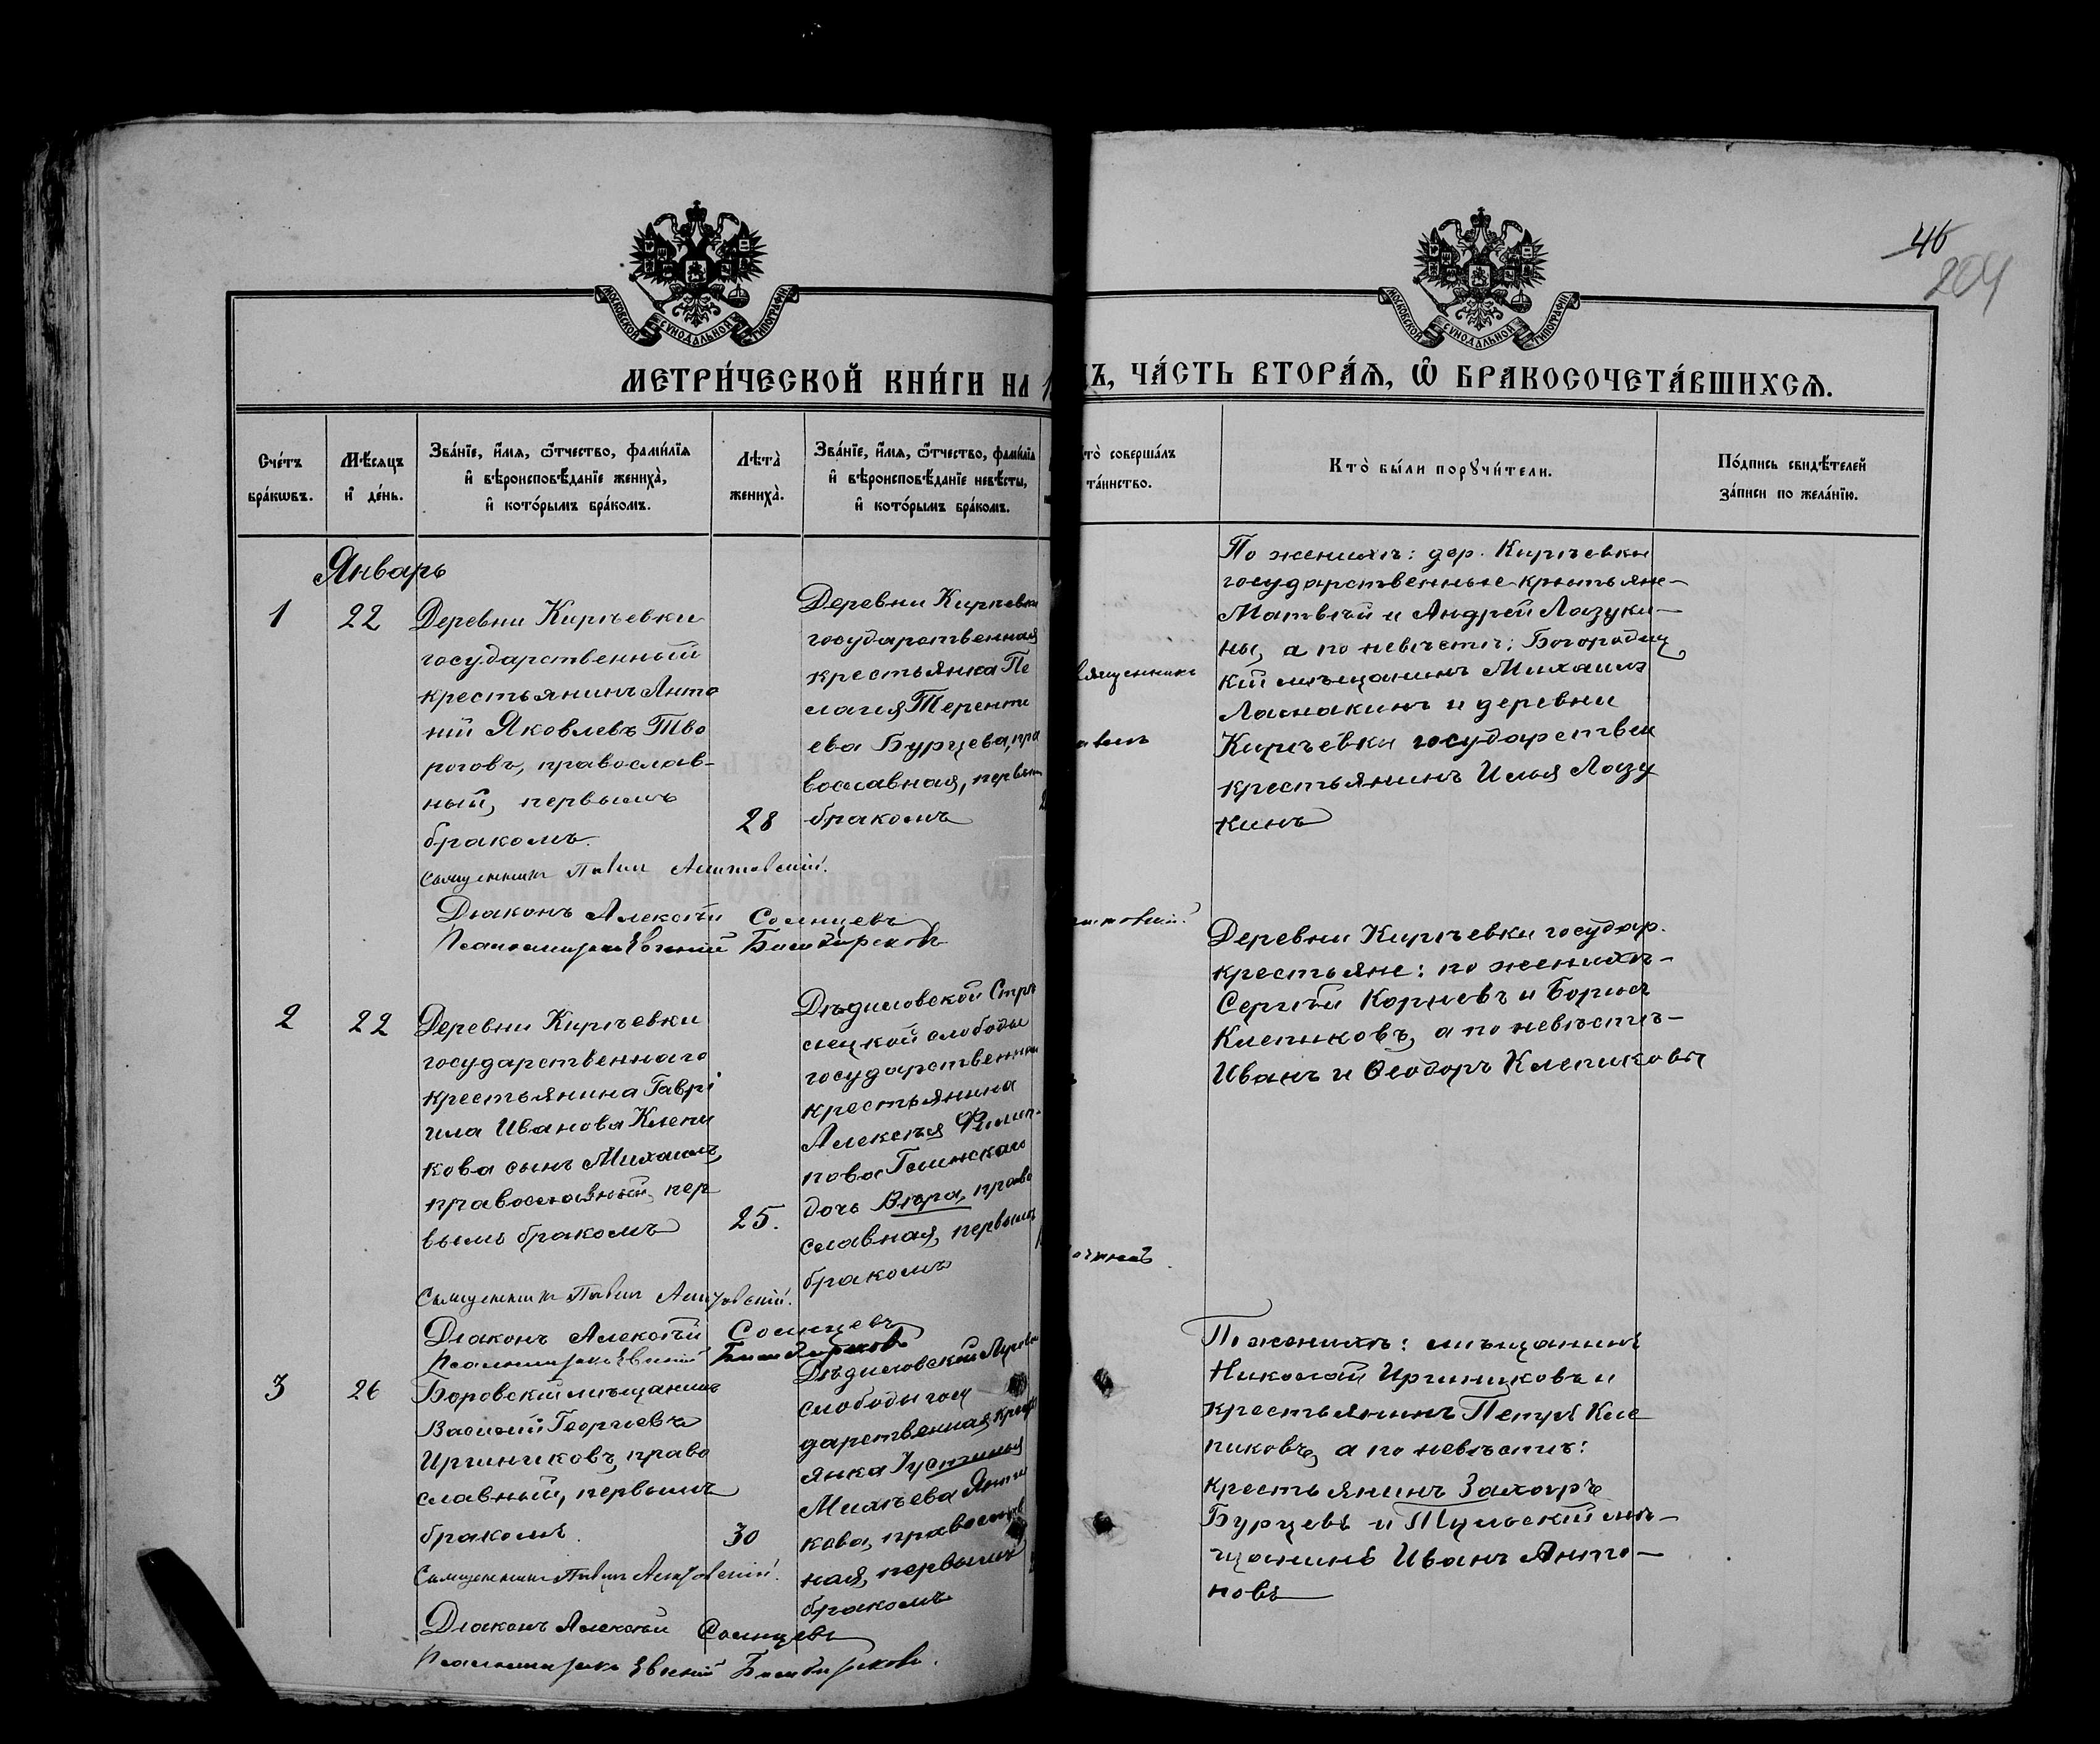 46
204
МОСКОВСКОЙ СѴНОДАЛЬНОЙ ТИПОГРАФІИ
МОСКОВСКОЙ СѴНОДАЛЬНОЙ ТИПОГРАФІИ
МЕТРИ́ЧЕСКОЙ КНИ́ГИ НА 1
ДЪ, ЧА́СТЬ ВТОРА́Ѧ, Ѽ БРАКОСОЧЕТА́ВШИХСѦ.
Сче́тъ
бра́кѡвъ.
Мѣ́сѧцъ
и҆ де́нь.
Зва́нїе, и҆́мѧ, ѻ҆́тчество, фами́лїѧ
и҆ вѣроисповѣ́данїе жениха̀,
и҆ кото́рымъ бра́комъ.
Лѣта̀
жениха̀.
Зва́нїе, и҆́мѧ, ѻ҆́тчество, фами́лїѧ
и҆ вѣроисповѣ́данїе невѣ́сты,
и҆ кото́рымъ бра́комъ.
то̀ соверша́лъ
та́инство.
Кто̀ бы́ли порꙋчи́тели.
По́дпись свидѣ́телей
за́писи по жела́нїю.
Январь
1
22
Деревни Кирѣевки
государственный
крестьянинъ Анто
ній Яковлевъ Тво
роговъ, православ-
ный, первымъ
бракомъ.
28
Деревни Кирѣевки
государственная
крестьянка Пе
лагія Теренти
ева Бурцева, пра
вославная, первым
бракомъ
вященникъ
По женихѣ: дер. Кирѣевки
государственные крестьяне-
Матвѣй и Андрей Лазуки-
ны, а по невѣстѣ: Богородиц
кій мѣщанинъ Михаилъ
и деревни
Кирѣевки государствен
крестьянинъ Илья Лазу
кинъ
Священникъ Павел
Діаконъ Алексѣй Солнцевъ
Псаломщикъ Евгеній
2
22
Деревни Кирѣевки
государственнаго
крестьянина Гаврі
ила Иванова Клепи
кова сынъ Михаилъ,
православный, пер
вымъ бракомъ
25.
Дѣдиловской Стрѣ
лецкой слободы
государственнаго
крестьянина
Алексѣя Филип-
пова Глинскаго
дочь Вѣра, право
славная, первымъ
бракомъ
Деревни Кирѣевки государ.
крестьяне: по женихѣ-
Сергѣй Корневъ и Борисъ
Клепиковъ, а по невѣстѣ-
Иванъ и Ѳеодоръ Клепиковы
Священникъ Павел
Діаконъ Алексѣй Солнцевъ
Псаломщикъ Евгеній
3
26
Боровскій мѣщанинъ
Василій Георгіевъ
Иргинниковъ, право
славный, первымъ
бракомъ.
30
Дѣдиловской
слободы госу
дарственная крест
янка Іустинья
Михѣева Анти
кова, православ
ная, первымъ
бракомъ
По женихѣ: мѣщанинъ
Николай Иргинниковъ и
крестьянинъ Петръ Кле
пиковъ, а по невѣстѣ:
крестьянинъ Захаръ
Бурцевъ и Тульскій мѣ-
щанинъ Иванъ Анто-
новъ
Священникъ Павел
Діаконъ Алексѣй Солнцевъ
Псаломщикъ Евгеній